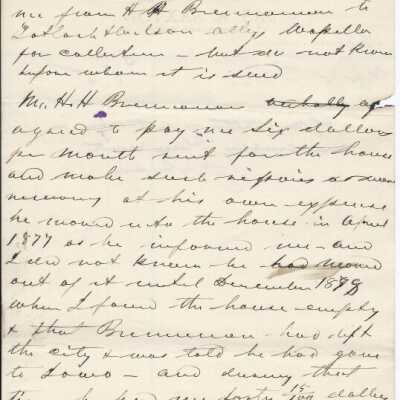 me from H H Brenneman to
for collection – but do not know
upon whom it is sued
Mr. H. H Brenneman verbally ag-
agreed to pay me Six dollars
per month rent for the house
and make such repairs as were
necessary at his own expense
he moved into the house in April
1877 as he informed me – and
I did not know he had moved
out of it until December 1879
when I found the house empty
& that Brenneman had left
the city & was told he had gone
to Iowa – and during that
he paid me forty 15/100 dollars